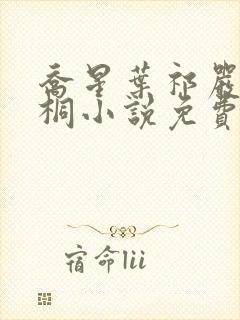 喬星葉祁嚴
桐小說免費
宿命lii